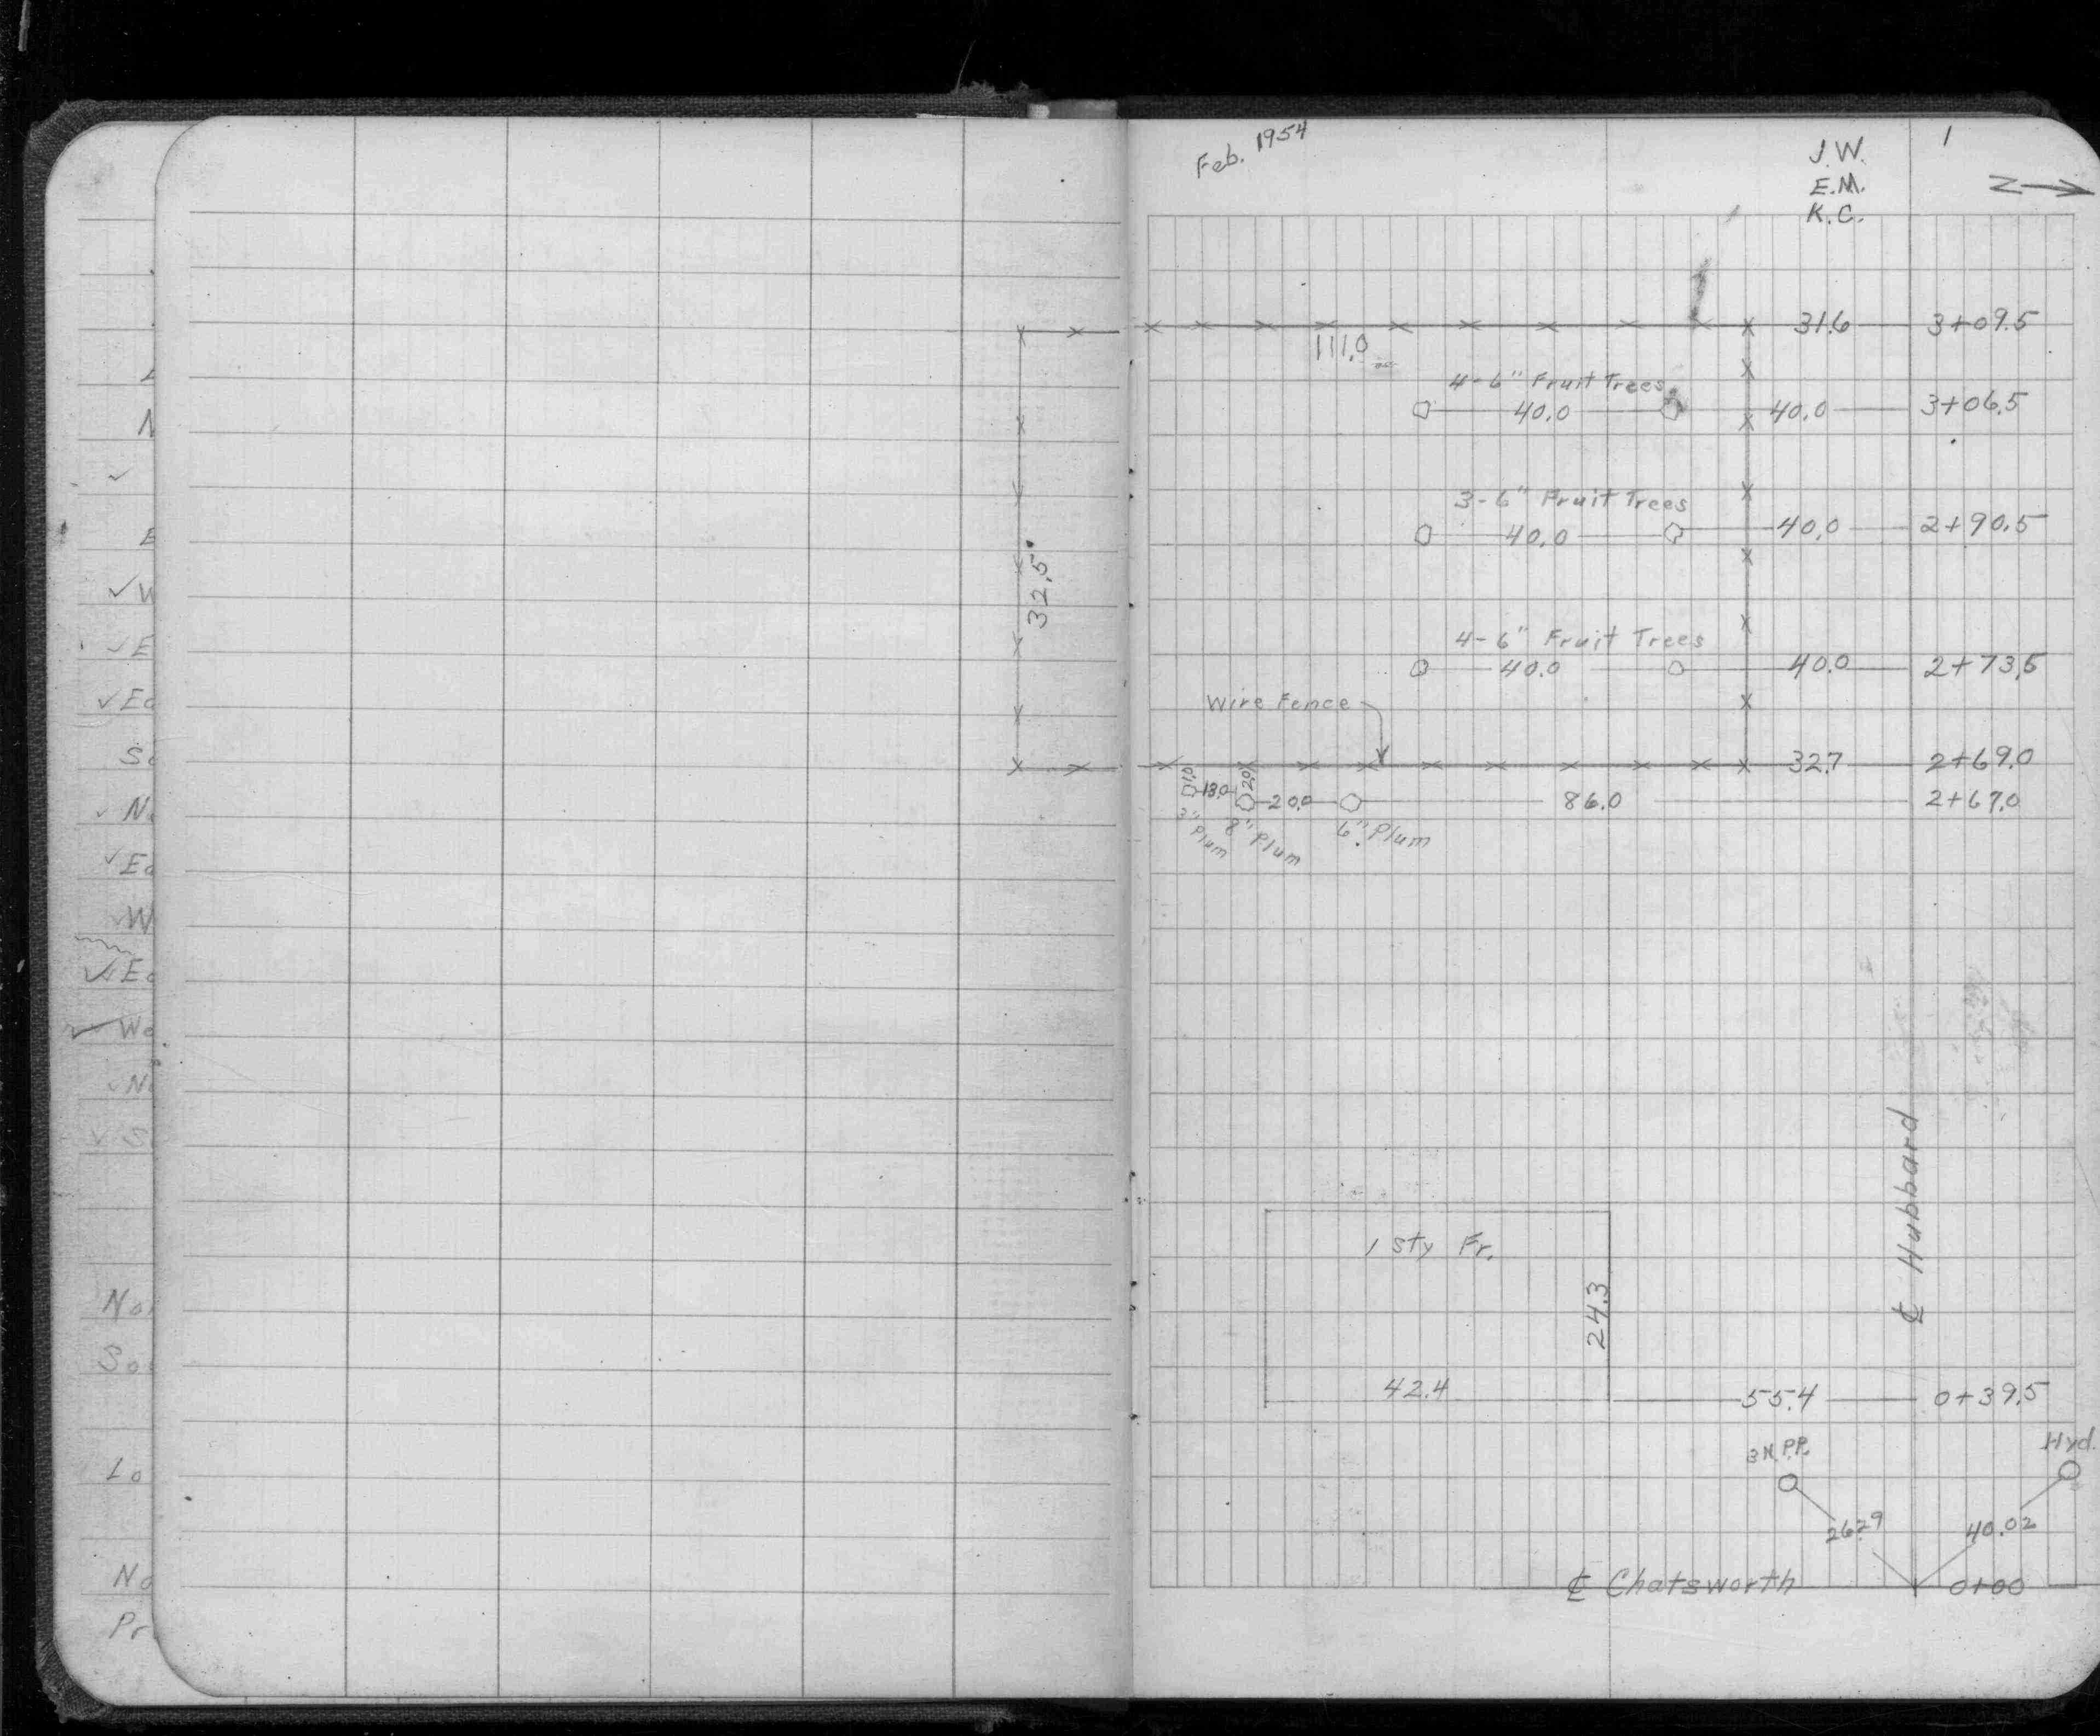 Feb. 1954
J.W.
E.M.
K.C.
1
Z
31.6 3+09.5
111.0
4-6" Fruit Trees
40.0 40.0 3+06.5
3-6" Fruit Trees
40.0 40.0 2+90.5
32.5
4-6" Fruit Trees
40.0 40.0 2+73.5
Wire Fence
32.7 2+69.0
1.0 13.0 2.0 20.0 86.0 2+67.0
3" Plum 8" Plum 6" Plum
℄ Hubbard
1 Sty Fr.
24.3
42.4 55.4 0+39.5
P.P. Hyd.
26.29 40.02
℄ Chatsworth 0+00
N
E
✓W
✓E
✓Ea
So
✓No
✓Ea
W
✓Ea
✓We
✓No
✓S
Nor
Sou
Lo
No
Pr